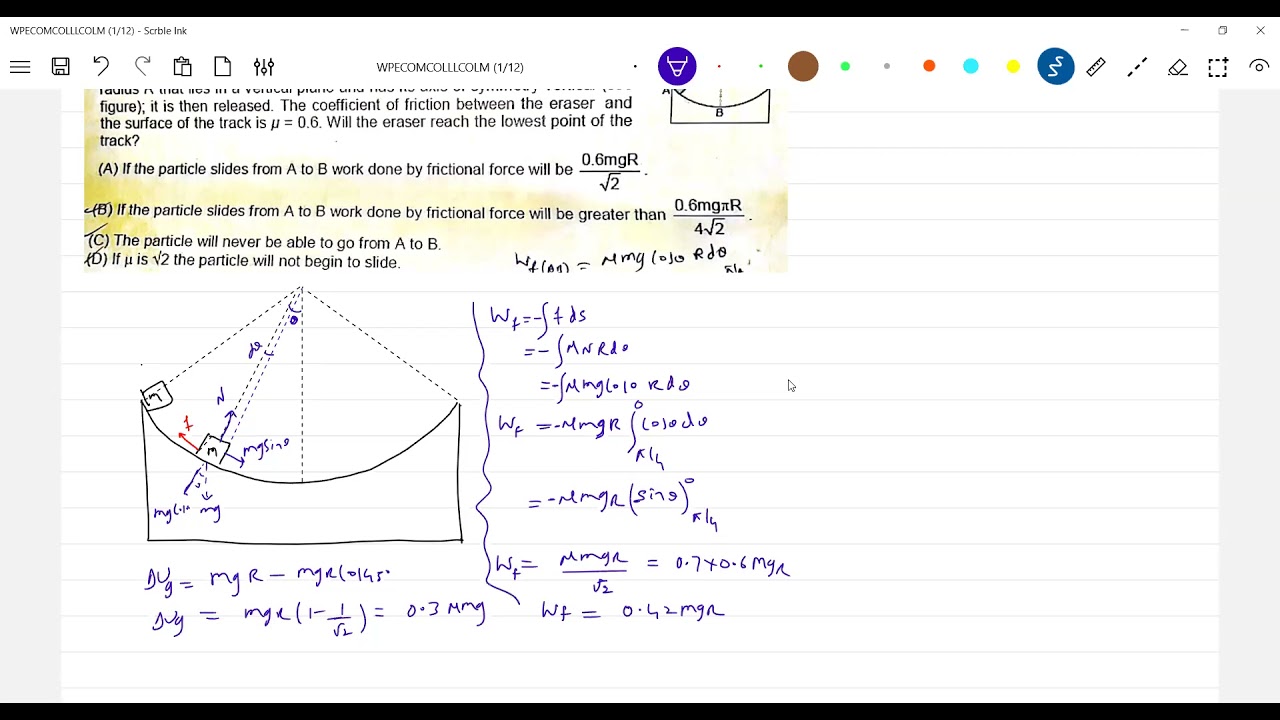 WPECOMCOLLLCOLM (1/12) - Scrble Ink
WPECOMCOLLLCOLM (1/12)
figure); it is then released. The coefficient of friction between the eraser and
the surface of the track is μ = 0.6. Will the eraser reach the lowest point of the
track?
A
B
(A) If the particle slides from A to B work done by frictional force will be 0.6mgR/√2 .
(B) If the particle slides from A to B work done by frictional force will be greater than 0.6mgπR/4√2 .
(C) The particle will never be able to go from A to B.
(D) If μ is √2 the particle will not begin to slide.
W_f(AB) = μmg cosθ Rdθ
π/4
θ
dθ
m
N
f
m
mg sinθ
mg cosθ
mg
ΔU_g = mgR - mgR cos45°
ΔU_g = mgR (1 - 1/√2) = 0.3 μmg
W_f = -∫ f ds
= -∫ μN Rdθ
= -∫ μmg cosθ Rdθ
W_f = -μmgR ∫_{π/4}^{0} cosθ dθ
= -μmgR (sinθ)_{π/4}^{0}
W_f = μmgR/√2 = 0.7 × 0.6 mgR
W_f = 0.42 mgR